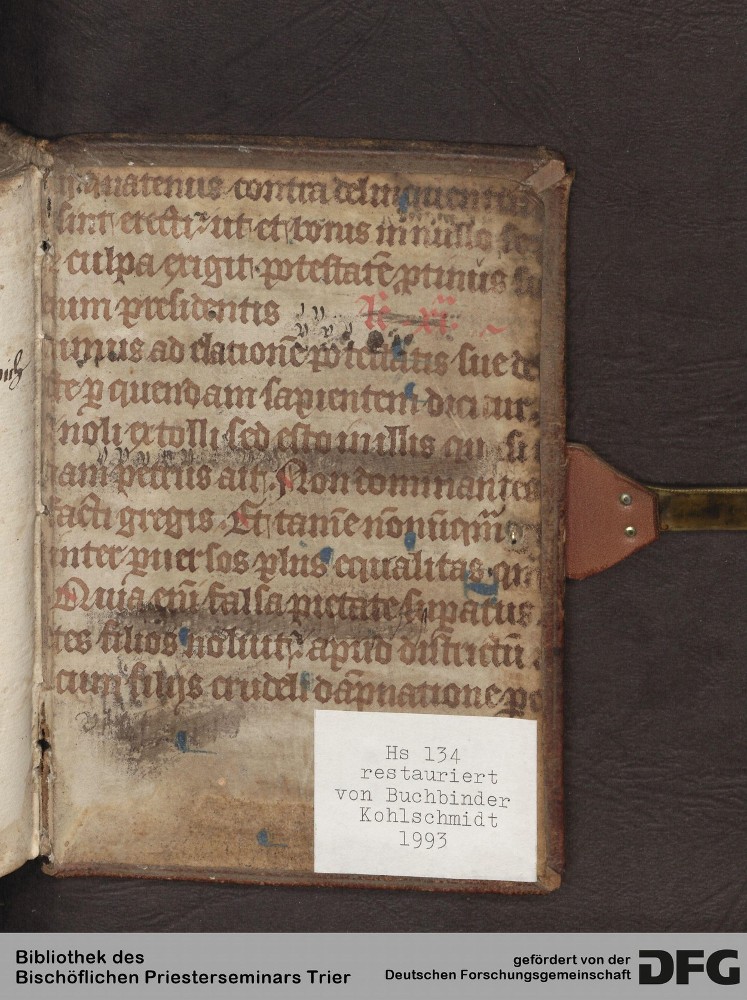 quatenus contra delinquentium
sint erecti ut et bonis in nullo
culpa exigit potestatē ꝓtinus
presidentis
ad elationē potestatis sue
ꝑ quendam sapientem dicitur
noli extolli sed esto in illis
petrus ait Non dominantes
gregis Et tamē nōnūquā
inter ꝑuersos plus equalitas
Quia eni falsa pietate suꝑatus
filios noluit apud districtū
cum filijs crudeli dāpnatione
Hs 134
restauriert
von Buchbinder
Kohlschmidt
1993
Bibliothek des
Bischöflichen Priesterseminars Trier
gefördert von der
Deutschen Forschungsgemeinschaft
DFG